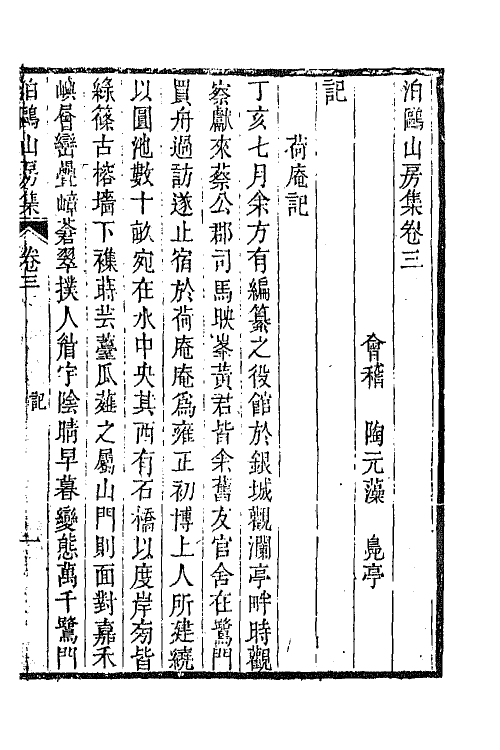 泊鷗山房集卷三
會稽　陶元藻　鳧亭
記
荷庵記
丁亥七月余方有編纂之役館於銀城觀瀾亭畔時觀
察獻來蔡公郡司馬映峯黃君皆余舊友官舍在鷺門
買舟過訪遂止宿於荷庵庵爲雍正初博上人所建繞
以圓池數十畝宛在水中央其西有石橋以度岸旁皆
綠篠古榕墻下襍蒔芸薹瓜薤之屬山門則面對嘉禾
嶼層巒疊嶂蒼翠撲人眉宇陰晴早暮變態萬千鷺門
泊鷗山房集　卷三　記　一